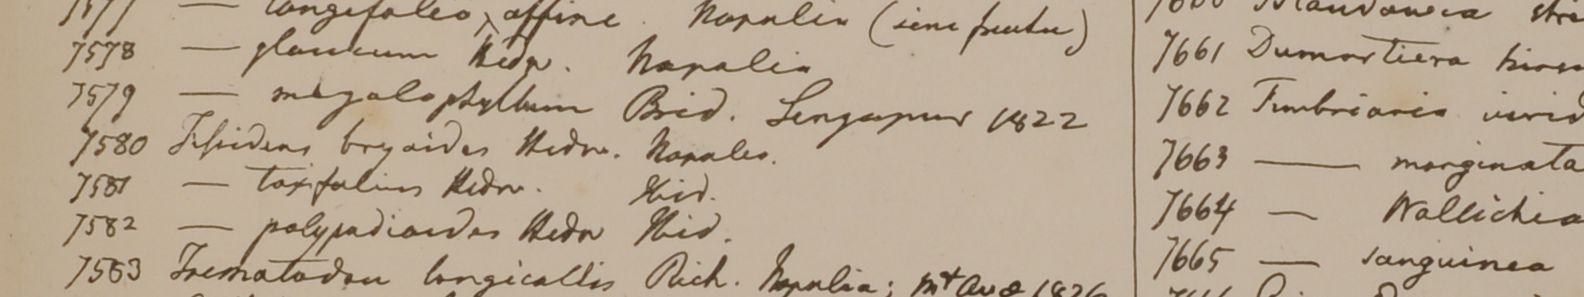 7577 — longifolio, affine. Napalia (sine fructu)
7578 — glaucum Hedw. Napalia
7579 — megalophyllum Brid. Singapur 1822
7580 Fissidens bryoides Hedw. Napalia.
7581 — taxifolius Hedw. Ibid.
7582 — polypodioides Hedw Ibid.
7583 Trematodon longicollis Rich. Napalia; Mt Ava 1826
7661 Dumortiera hirsu
7662 Fimbriaria virid
7663 — marginata
7664 — Wallichia
7665 — sanguinea